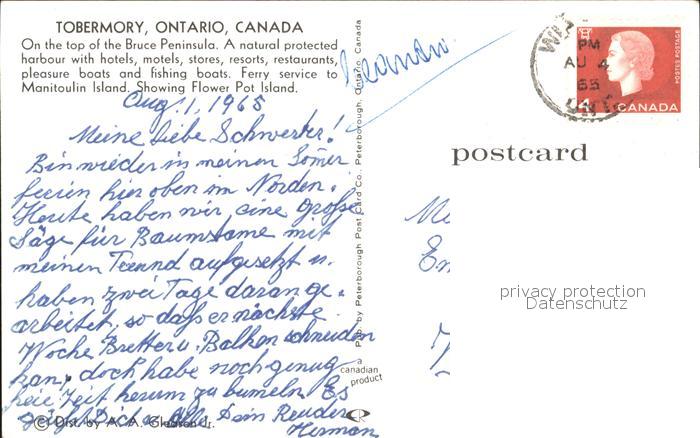 TOBERMORY, ONTARIO, CANADA
On the top of the Bruce Peninsula. A natural protected
harbour with hotels, motels, stores, resorts, restaurants,
pleasure boats and fishing boats. Ferry service to
Manitoulin Island. Showing Flower Pot Island.
Aug. 1, 1965
Meine liebe Schwester!
Bin wieder in meinen Somer
ferien hier oben im Norden.
Heute haben wir eine große
Säge für Baumstame mit
meinen Freund aufgesetzt u.
haben zwei Tage daran ge-
arbeitet, so daß er nächste
Woche Bretter u. Balken schneiden
kan, doch habe noch genug
freie Zeit herum zu bumeln. Es
grüßt Dich u. Alle Dein Bruder
Herman
(C) Dist. by A. A. Gleason Jr.
Pub. by Peterborough Post Card Co., Peterborough, Ontario, Canada
a
canadian
product
PM
AU 4
65
ONT
4
CANADA
POSTES POSTAGE
postcard
privacy protection
Datenschutz